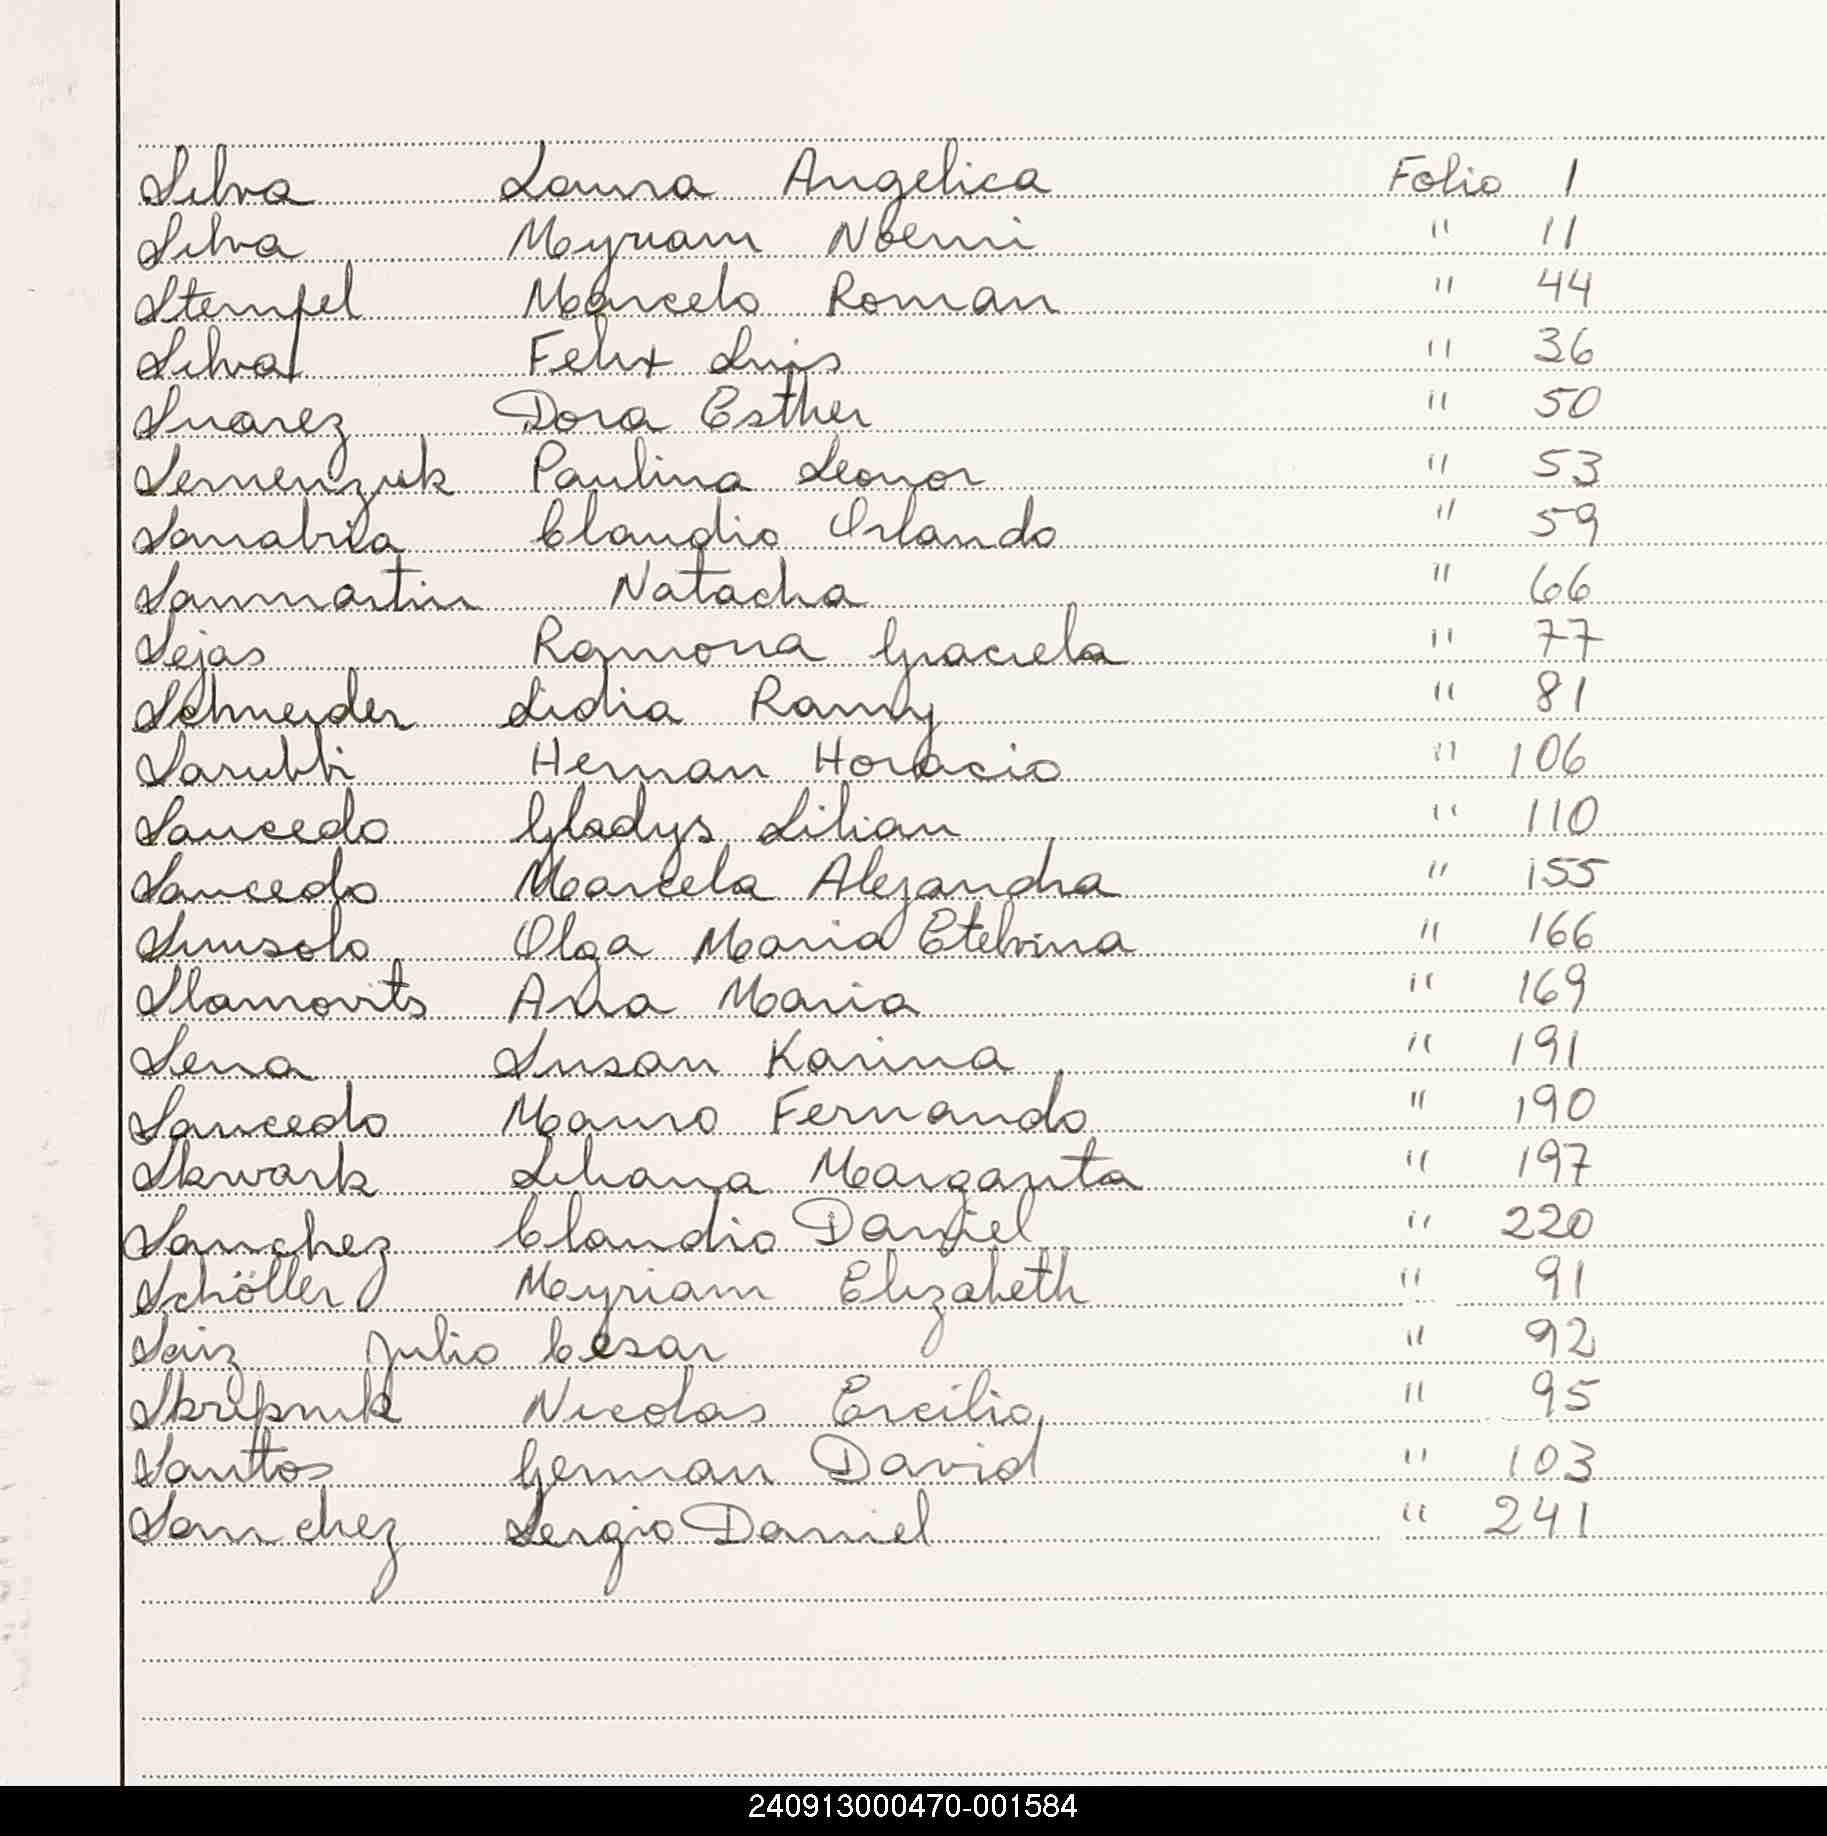 Silva Laura Angelica Folio 1
Silva Myriam Noemi " 11
Stempel Marcelo Roman " 44
Silva Felix Luis " 36
Suarez Dora Esther " 50
Semenzuk Paulina Leonor " 53
Sanabria Claudio Orlando " 59
Sanmartin Natacha " 66
Sejas Ramona Graciela " 77
Schneider Lidia Ramy " 81
Sarubbi Hernan Horacio " 106
Saucedo Gladys Lilian " 110
Saucedo Marcela Alejandra " 155
Sunsolo Olga Maria Etelvina " 166
Slamovits Ana Maria " 169
Sena Susan Karina " 191
Saucedo Mauro Fernando " 190
Skwark Liliana Margarita " 197
Sanchez Claudio Daniel " 220
Schöller Myriam Elizabeth " 91
Saiz Julio Cesar " 92
Skripnuk Nicolas Ercilio " 95
Santtos German David " 103
Sanchez Sergio Daniel " 241
240913000470-001584